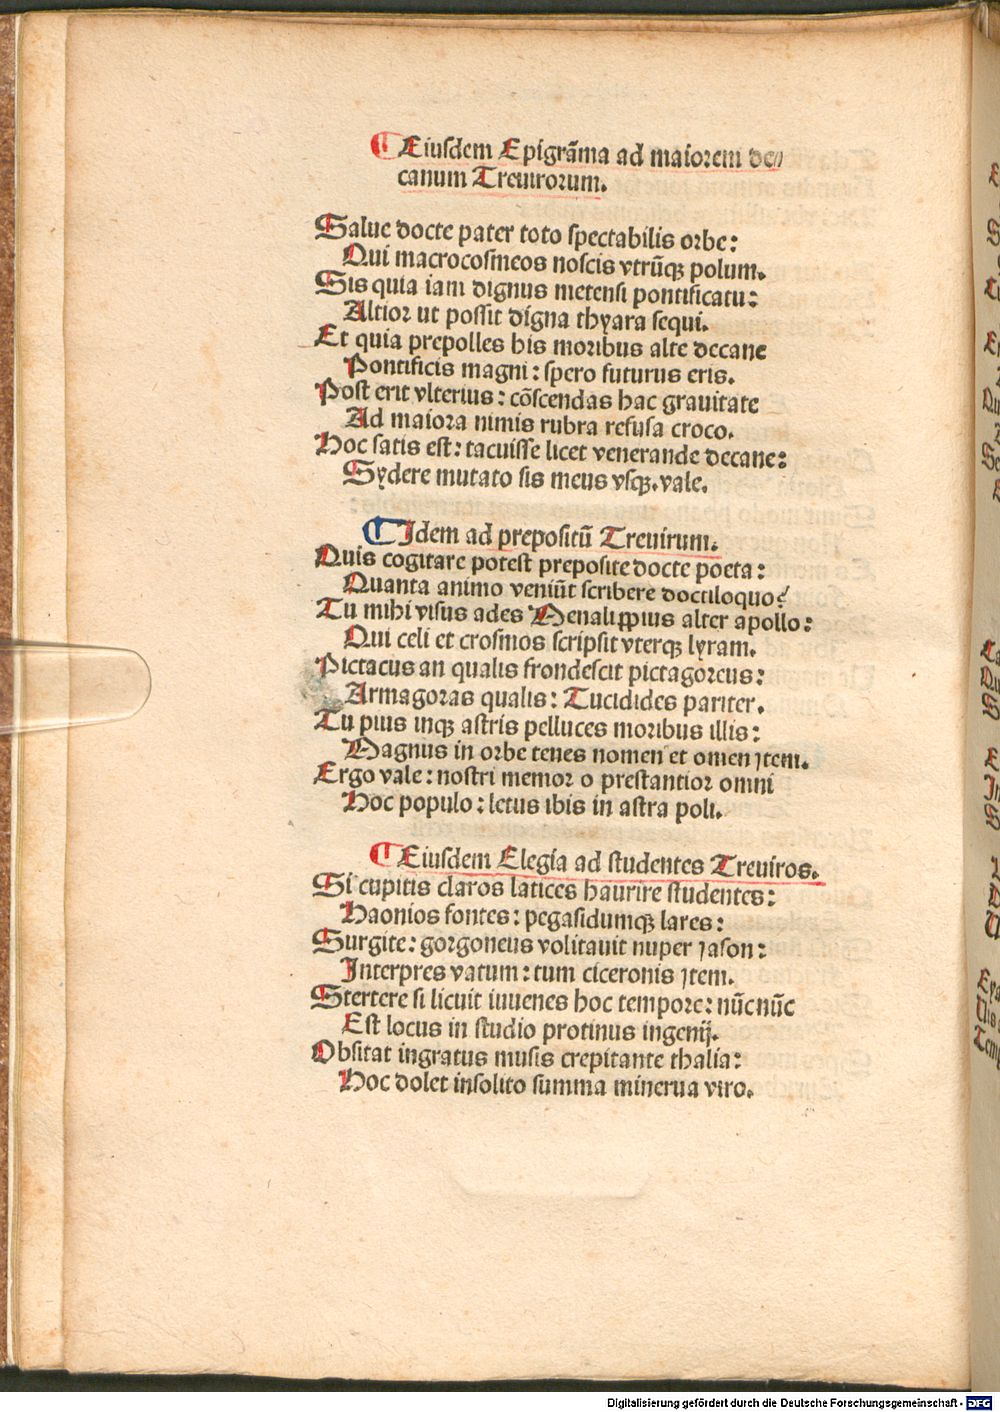 ¶ Eiusdem Epigrãma ad maiorem de⸗
canum Treuirorum.
Salue docte pater toto spectabilis orbe:
Qui macrocosmeos noscis vtrũqꝫ polum.
Sis quia iam dignus metensi pontificatu:
Altior ut possit digna thyara sequi.
Et quia prepolles his moribus alte decane
Pontificis magni: spero futurus eris.
Post erit vlterius: cõscendas hac grauitate
Ad maiora nimis rubra refusa croco.
Hoc satis est: tacuisse licet venerande decane:
Sydere mutato sis meus vsqꝫ. vale.
¶ Idem ad prepositũ Treuirum.
Quis cogitare potest preposite docte poeta:
Quanta animo veniũt scribere dociloquo?
Tu mihi visus ades Menalippius alter apollo:
Qui celi et crosmos scripsit vterqꝫ lyram.
Pictacus an qualis frondescit pictagoreus:
Armagoras qualis: Tucidides pariter.
Tu pius inqꝫ astris pelluces moribus illis:
Magnus in orbe tenes nomen et omen item.
Ergo vale: nostri memor o prestantior omni
Hoc populo: letus ibis in astra poli.
¶ Eiusdem Elegia ad studentes Treuiros.
Si cupitis claros latices haurire studentes:
Haonios fontes: pegasidumqꝫ lares:
Surgite: gorgoneus volitauit nuper iason:
Interpres vatum: tum ciceronis item.
Stertere si licuit iuuenes hoc tempore: nũc nũc
Est locus in studio protinus ingenij.
Obsitat ingratus musis crepitante thalia:
Hoc dolet insolito summa minerua viro.
Digitalisierung gefördert durch die Deutsche Forschungsgemeinschaft - DFG